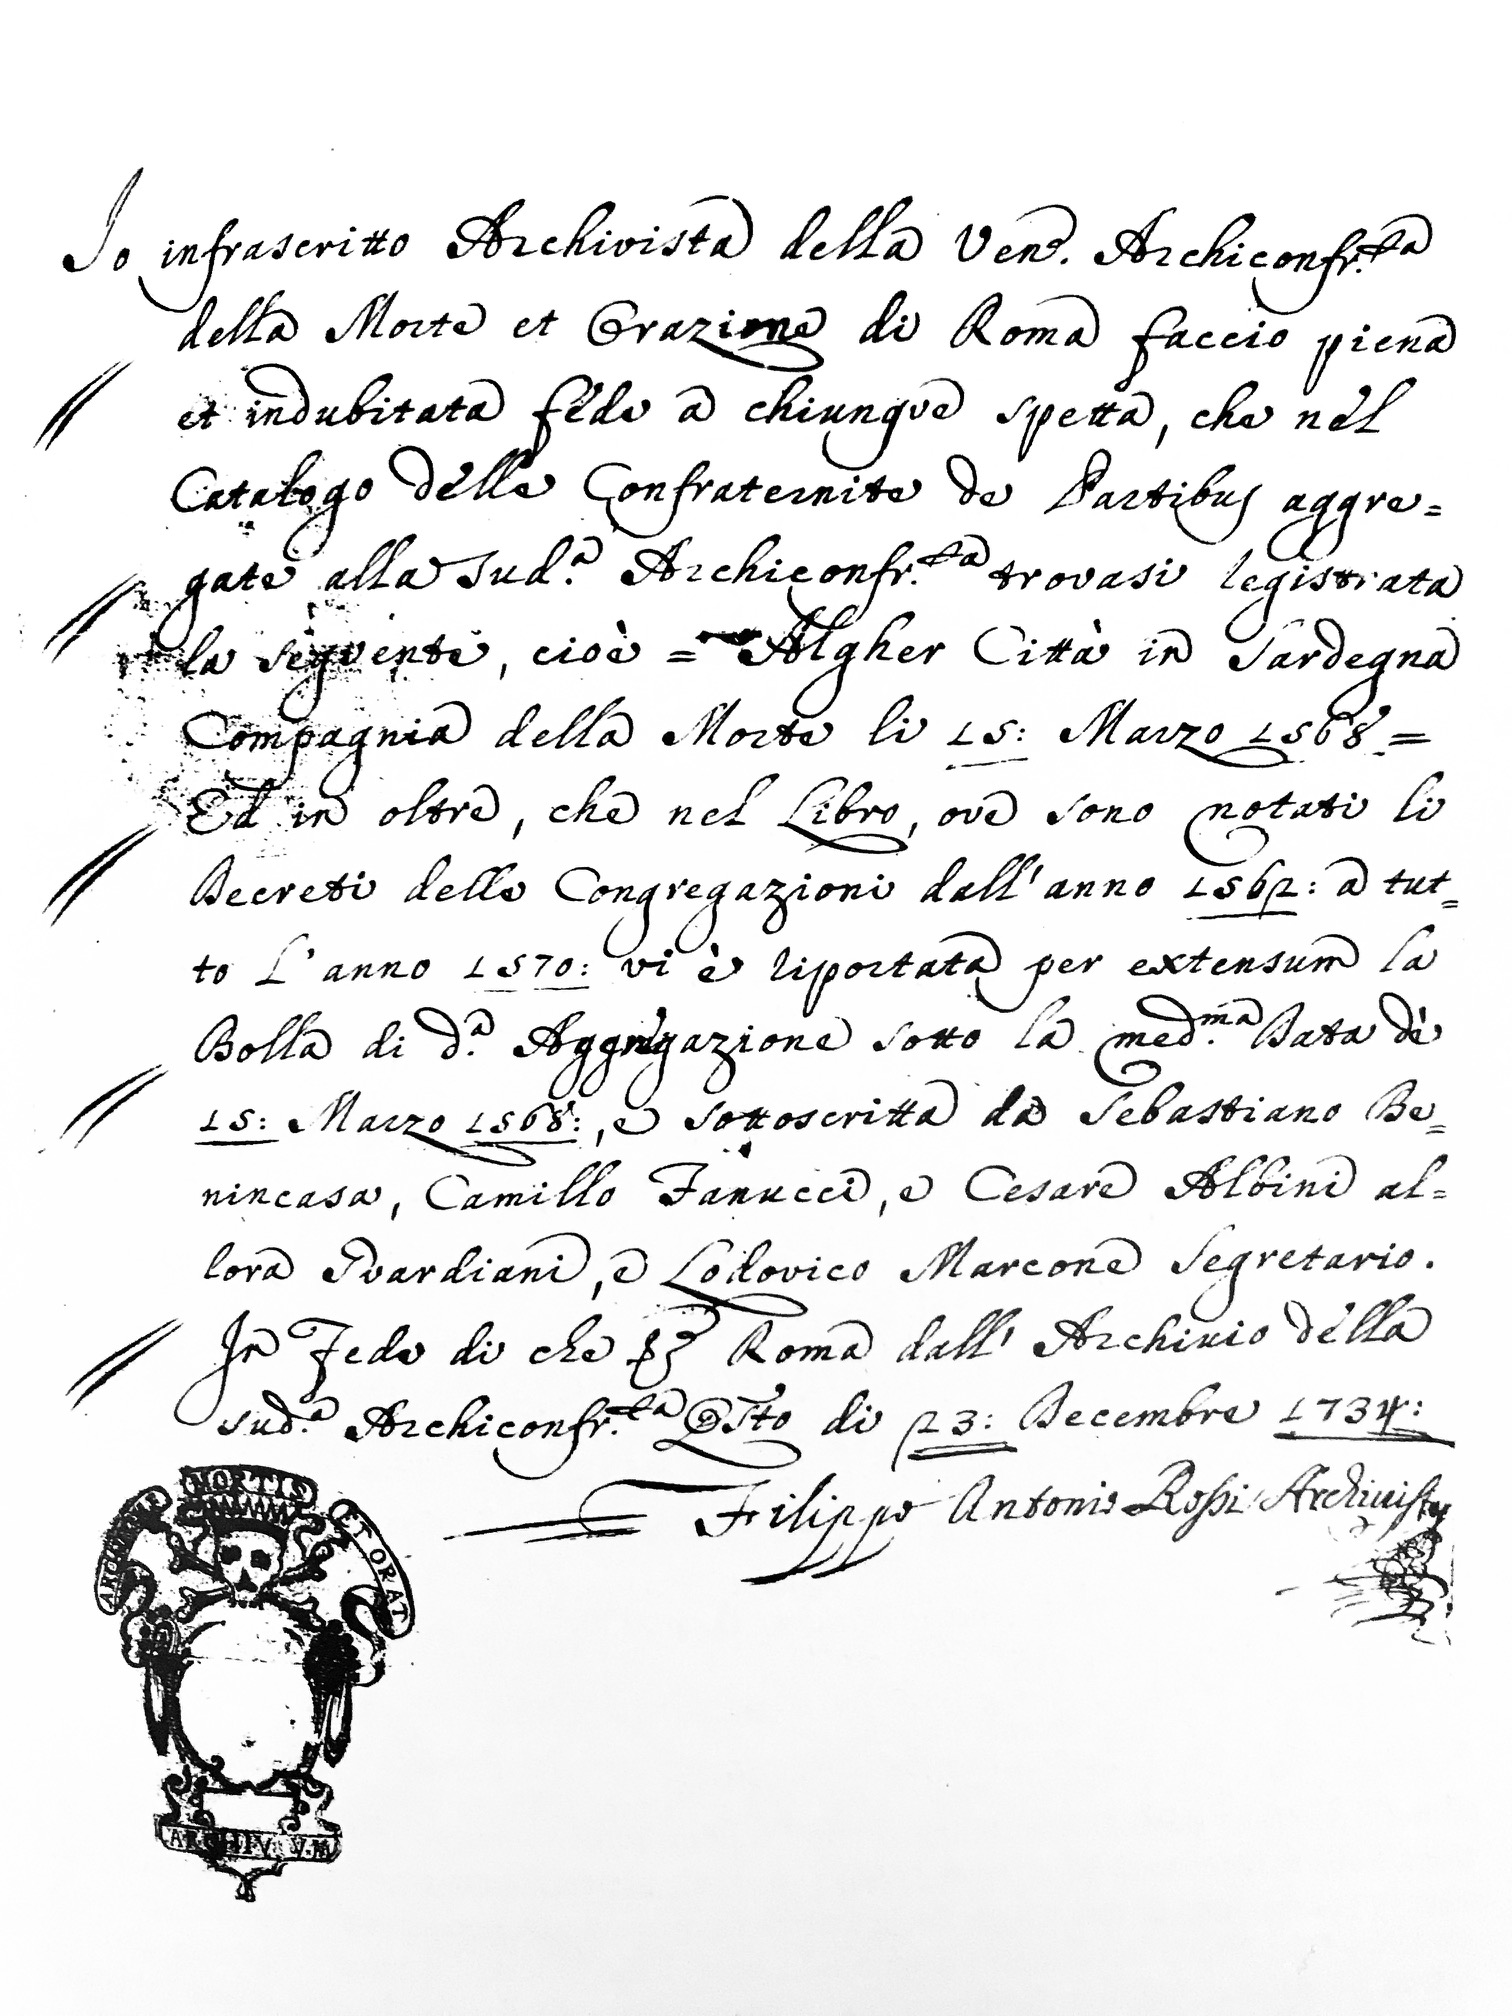 Io infrascritto Archivista della Ven. Archiconfr.ta
della Morte et Orazione di Roma faccio piena
et indubitata fede a chiunque spetta, che nel
Catalogo delle Confraternite de Partibus aggre=
gate alla Sud.a Archiconfr.ta trovasi registrata
la seguente, cioè = Algher Città in Sardegna
Compagnia della Morte li 15: Marzo 1568 =
Ed in oltre, che nel Libro, ove sono notati li
Decreti delle Congregazioni dall'anno 1562: a tut=
to l'anno 1570: vi è riportata per extensum la
Bolla di d.a Aggregazione sotto la med.ma Data dè
15: Marzo 1568:, e sottoscritta da Sebastiano Be=
nincasa, Camillo Fanucci, e Cesare Albini al=
lora Guardiani, e Lodovico Marcone Segretario.
In Fede di che Roma dall' Archivio della
sud.a Archiconfr.ta Qsto di 23: Decembre 1734:
Filippo Antonio Rossi Archivista
MORTIS
ET ORAT
ARCHIVUM